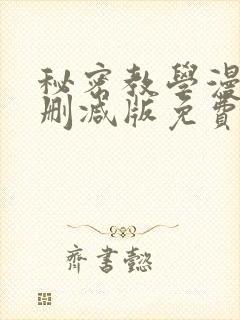 秘密教學漫
刪減版免費
齊書懿